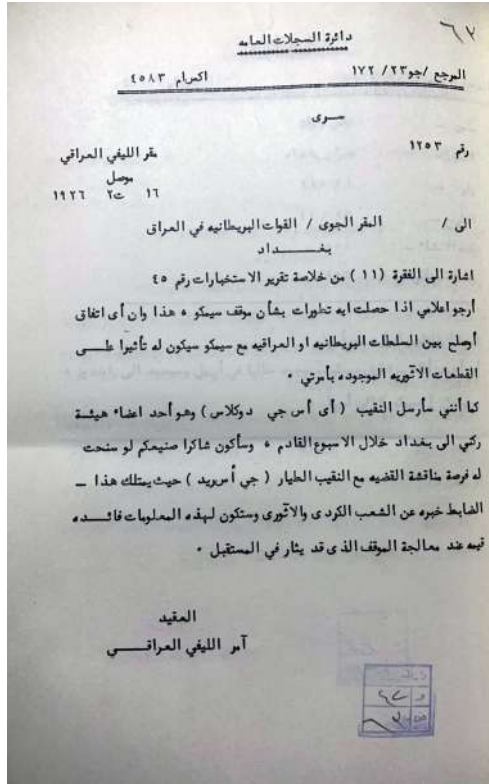 ٦٧
دائرة السجلات العامه
المرجع /جو٢٣/ ١٧٢ اكس ام ٤٥٨٣
سرى
رقم ١٢٥٣ مقر الليفي العراقي
موصل
١٦ ت٢ ١٩٢٦
الى / المقر الجوى / القوات البريطانيه في العراق
بغـــداد
اشارة الى الفقرة (١١) من خلاصة تقرير الاستخبارات رقم ٤٥
أرجو اعلامي اذا حصلت ايه تطورات بشأن موقف سيمكو ه هذا وان أى اتفاق
أوصلح بين السلطات البريطانيه او العراقيه مع سيمكو سيكون له تأثيرا علـــى
القطعات الاثوريه الموجوده بأمرتي ٠
كما أنني سأرسل النقيب ( أى أس جي دوكلاس) وهو أحد اعضاء هيئــة
ركني الى بغداد خلال الاسبوع القادم ه وسأكون شاكرا صنيعكم لو سنحت
له فرصة مناقشة القضيه مع النقيب الطيار ( جي أس ريد) حيث يمتلك هذا ــ
الضابط خبره عن الشعب الكردى والاثورى وستكون لهذه المعلومات فائـــده
قيمه عند معالجة الموقف الذى قد يثار في المستقبل ٠
العقيد
آمر الليفي العراقـــي